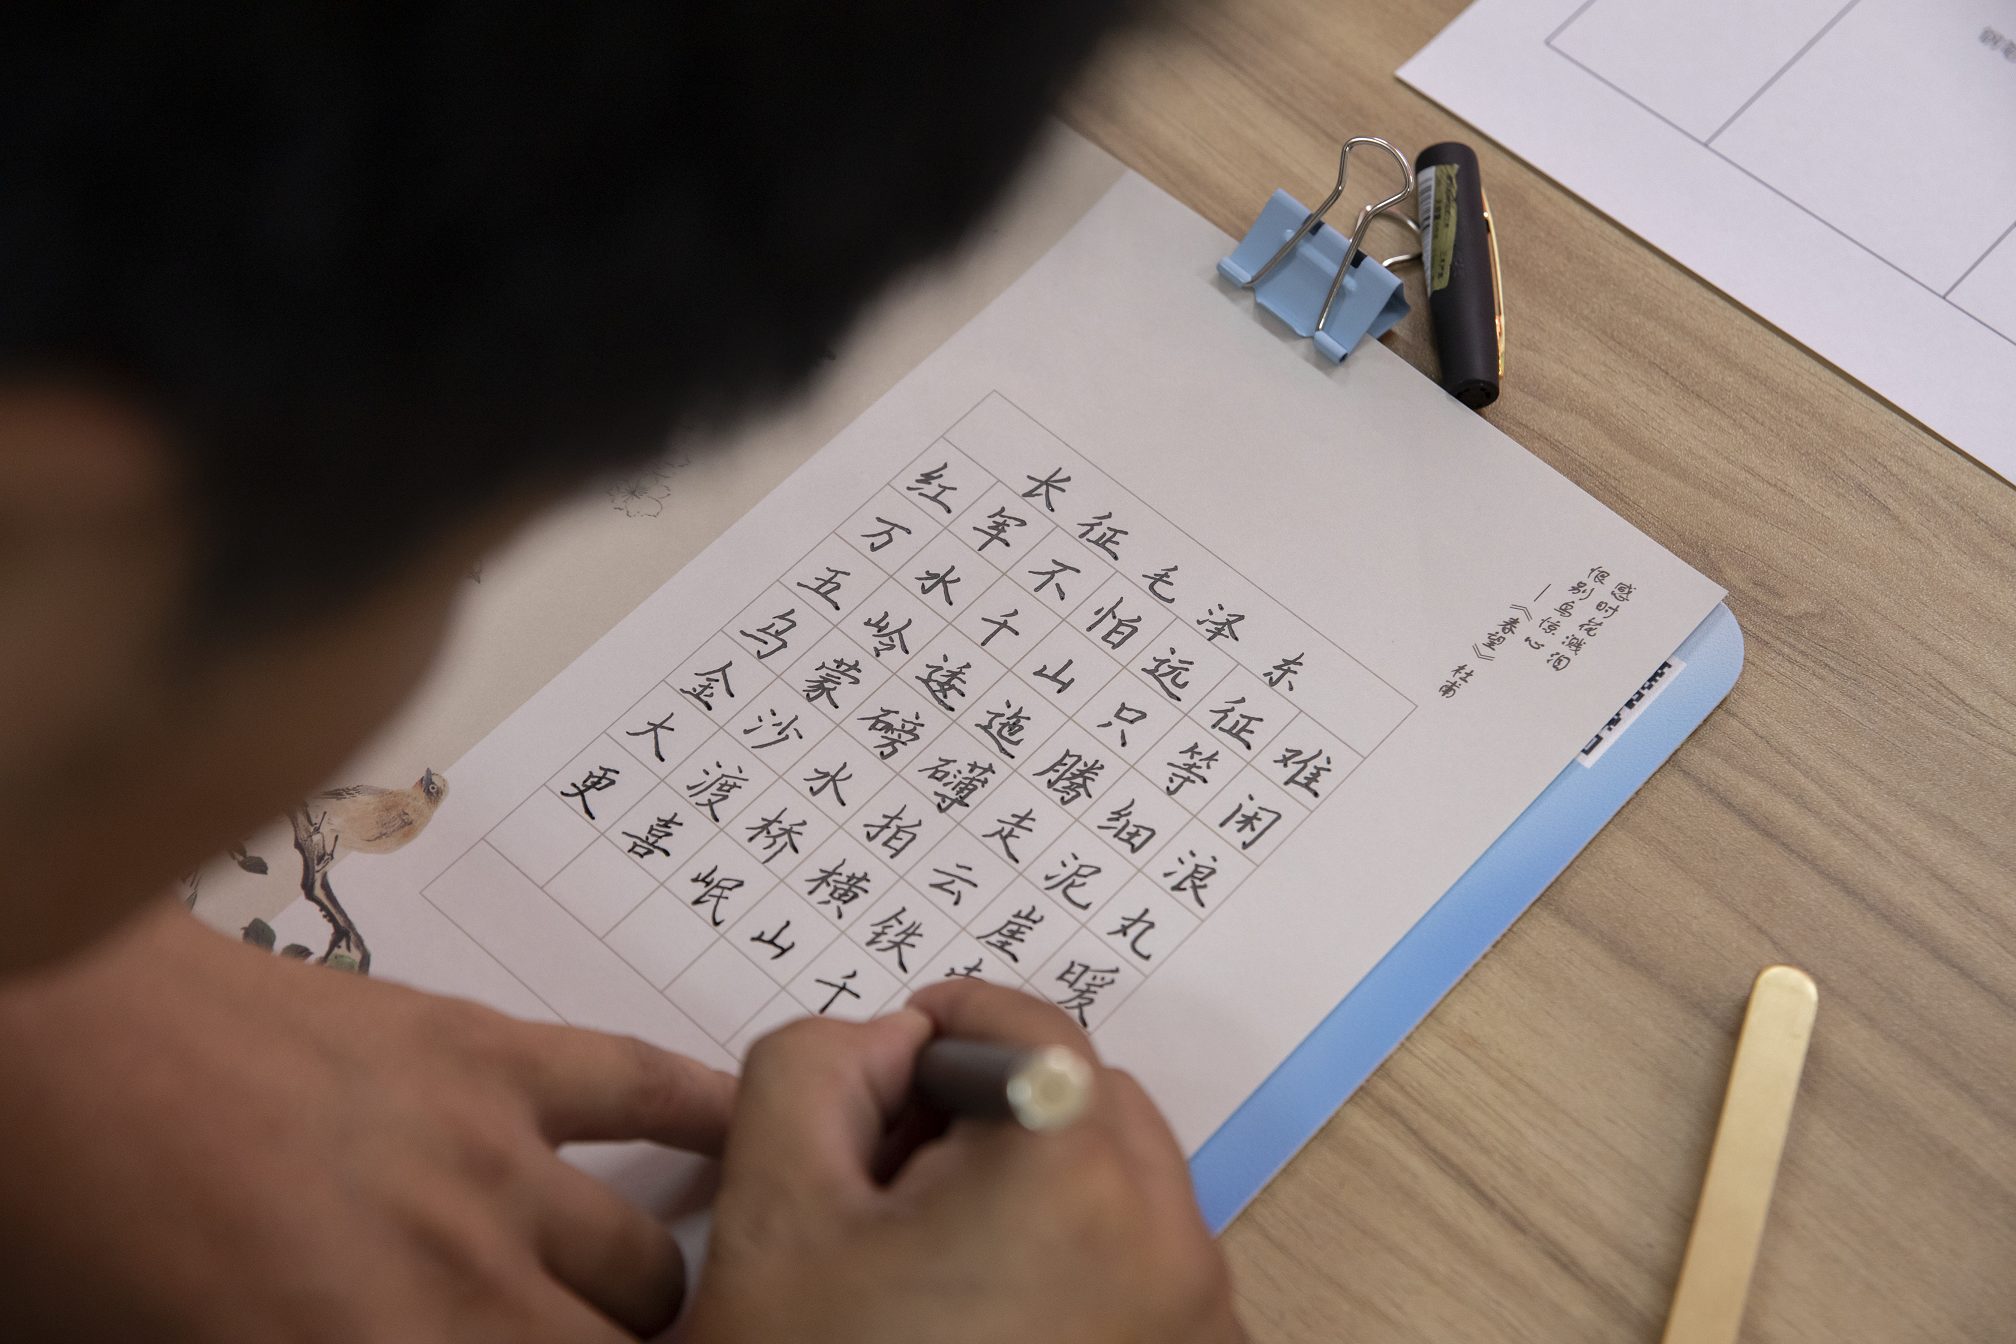 长征 毛泽东
红军不怕远征难
万水千山只等闲
五岭逶迤腾细浪
乌蒙磅礴走泥丸
金沙水拍云崖暖
大渡桥横铁
更喜岷山千
感时花溅泪
恨别鸟惊心
—《春望》 杜甫